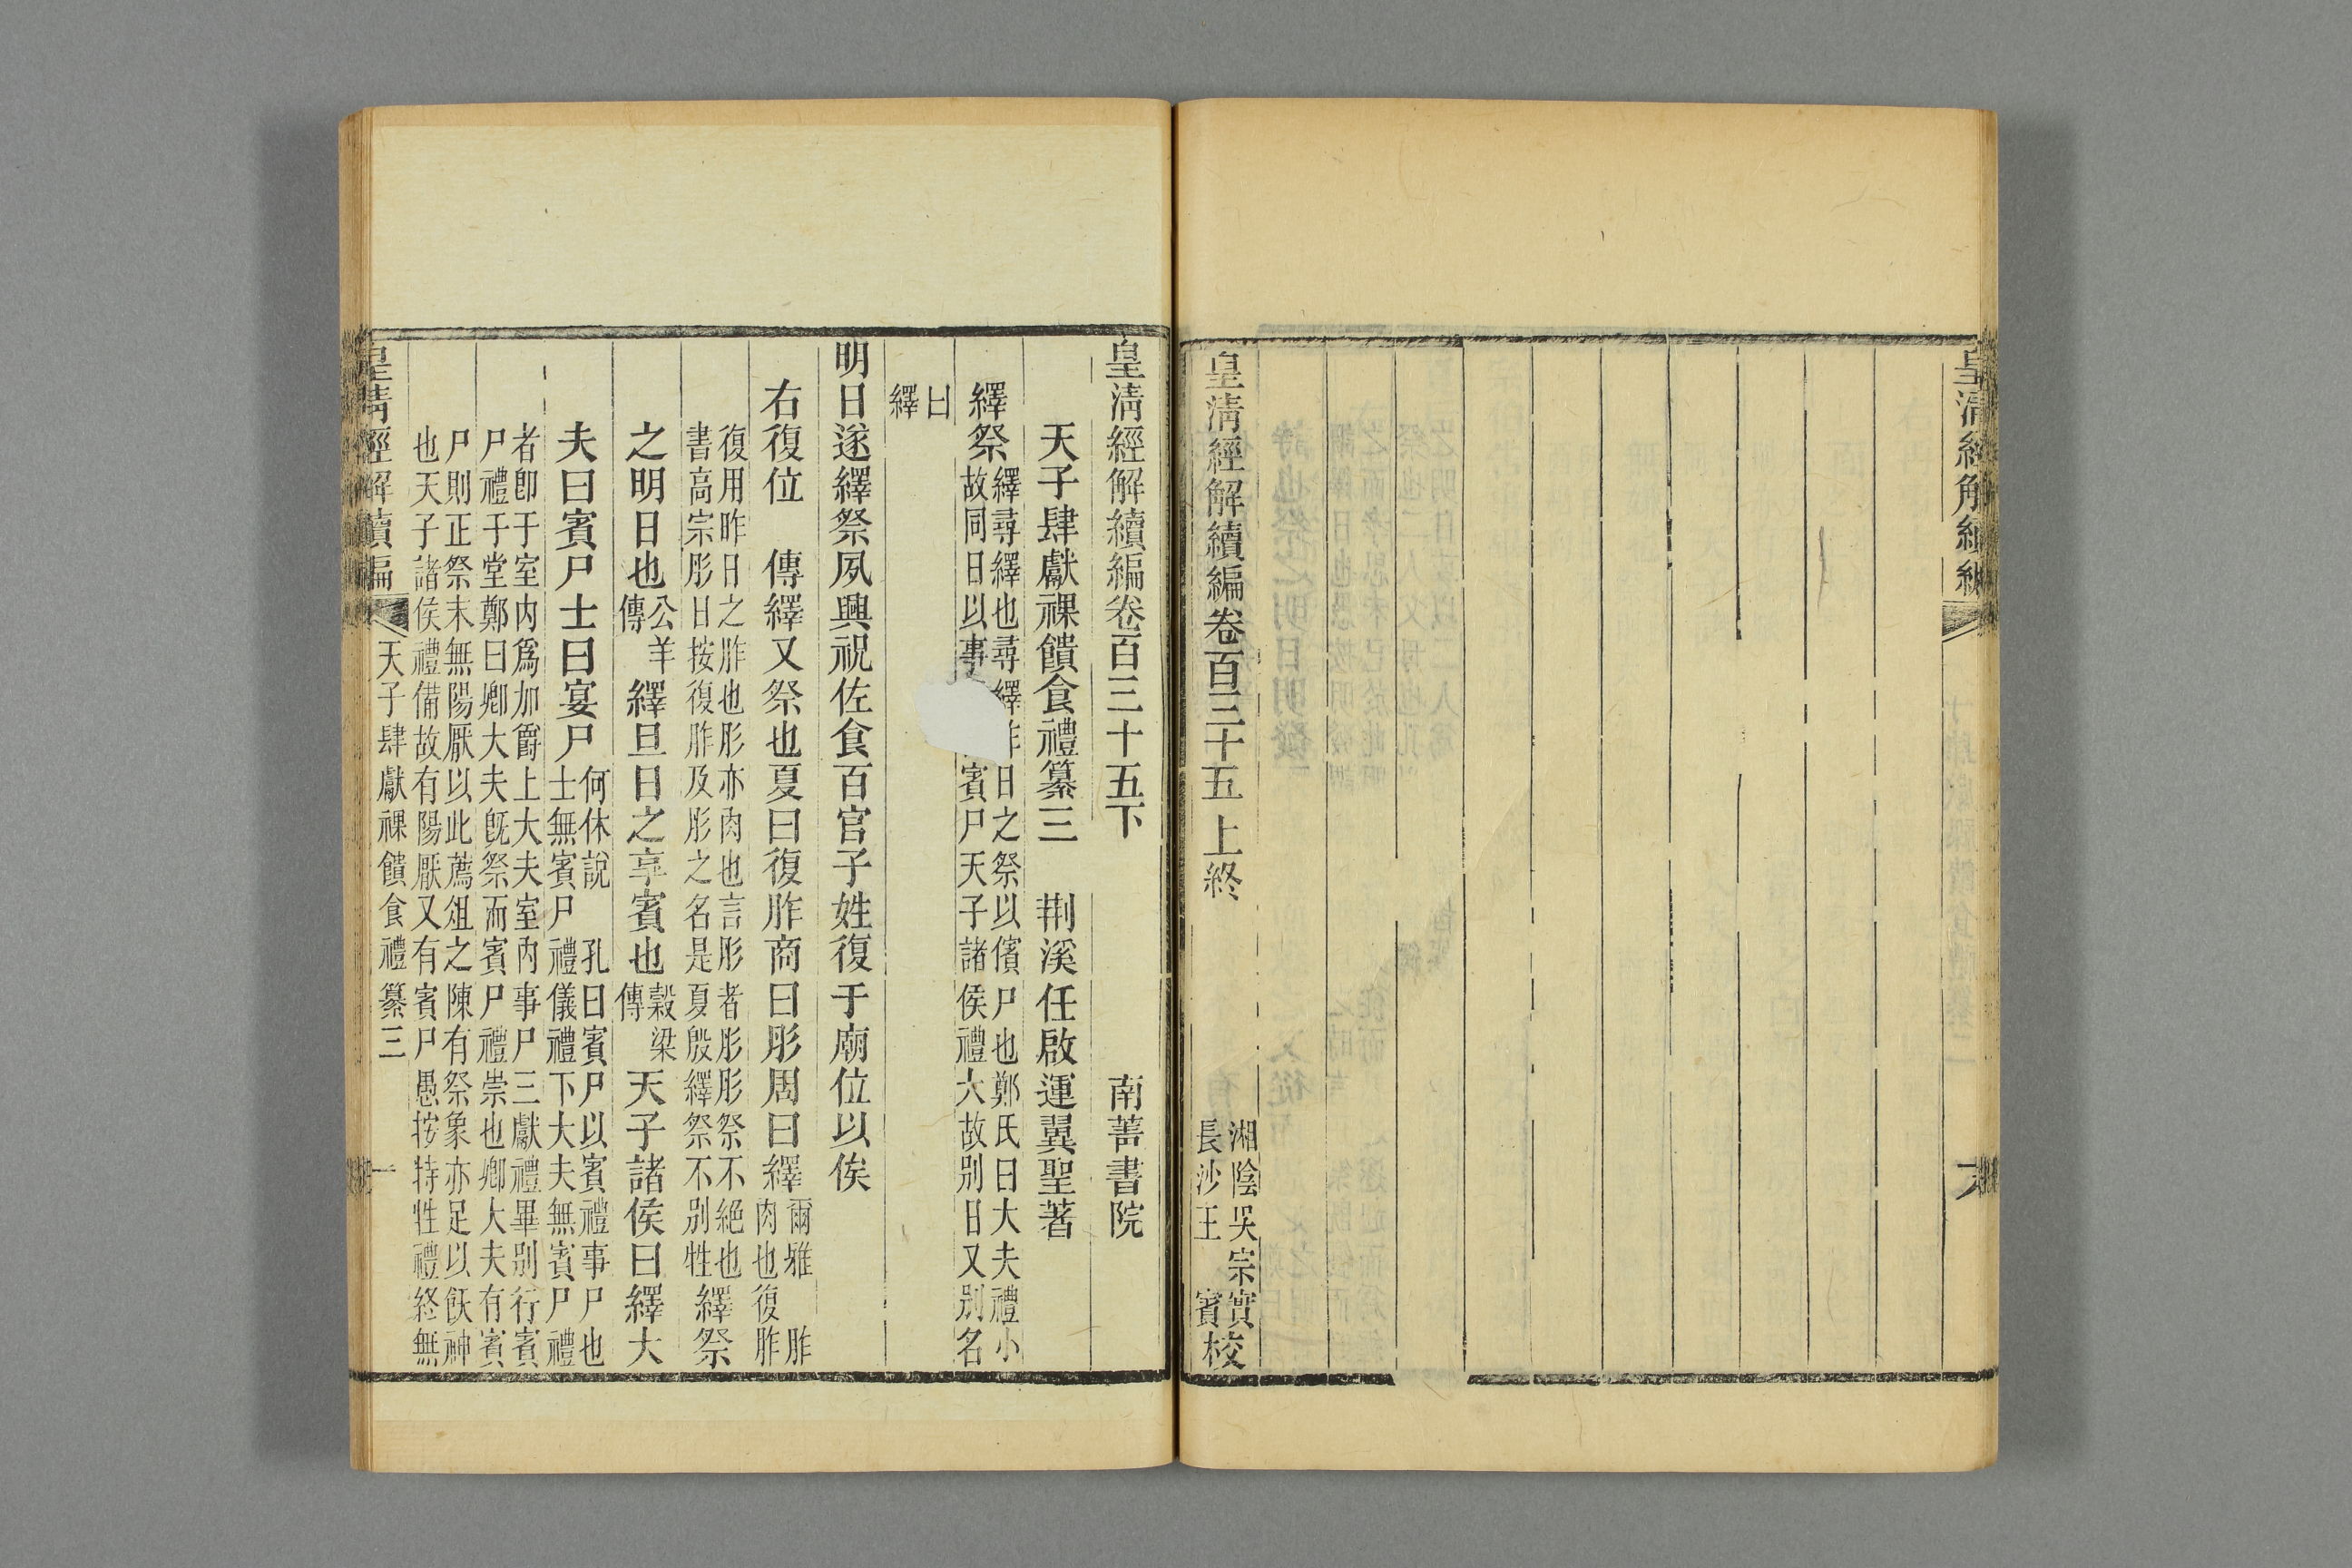 皇清經解續編
六
皇清經解續編卷百三十五上終
湘陰吳宗實
長沙王 賓校
皇清經解續編卷百三十五下 南菁書院
天子肆獻祼饋食禮纂三 荆溪任啟運翼聖著
繹祭
繹尋繹也尋繹昨日之祭以儐尸也鄭氏曰大夫禮小
故同日以事 賓尸天子諸侯禮大故別日又別名
曰
繹
明日遂繹祭夙興祝佐食百官子姓復于廟位以俟
右復位 傳繹又祭也夏曰復胙商曰肜周曰繹
爾雅 胙
肉也復胙
復用昨日之胙也肜亦肉也言肜者肜肜祭不絕也
書高宗肜日按復胙及肜之名是夏殷繹祭不別牲
繹祭
之明日也
公羊
傳
繹旦日之享賓也
穀梁
傳
天子諸侯曰繹大
夫曰賓尸士曰宴尸
何休說 孔曰賓尸以賓禮事尸也
士無賓尸 禮儀禮下大夫無賓尸禮
者卽于室內爲加爵上大夫室內事尸三獻禮畢別行賓
尸禮于堂鄭曰卿大夫旣祭而賓尸禮崇也卿大夫有賓
尸則正祭末無陽厭以此薦俎之陳有祭象亦足以飫神
也天子諸侯禮備故有陽厭又有賓尸愚按特牲禮終無
皇清經解續編 天子肆獻祼饋食禮纂三 一